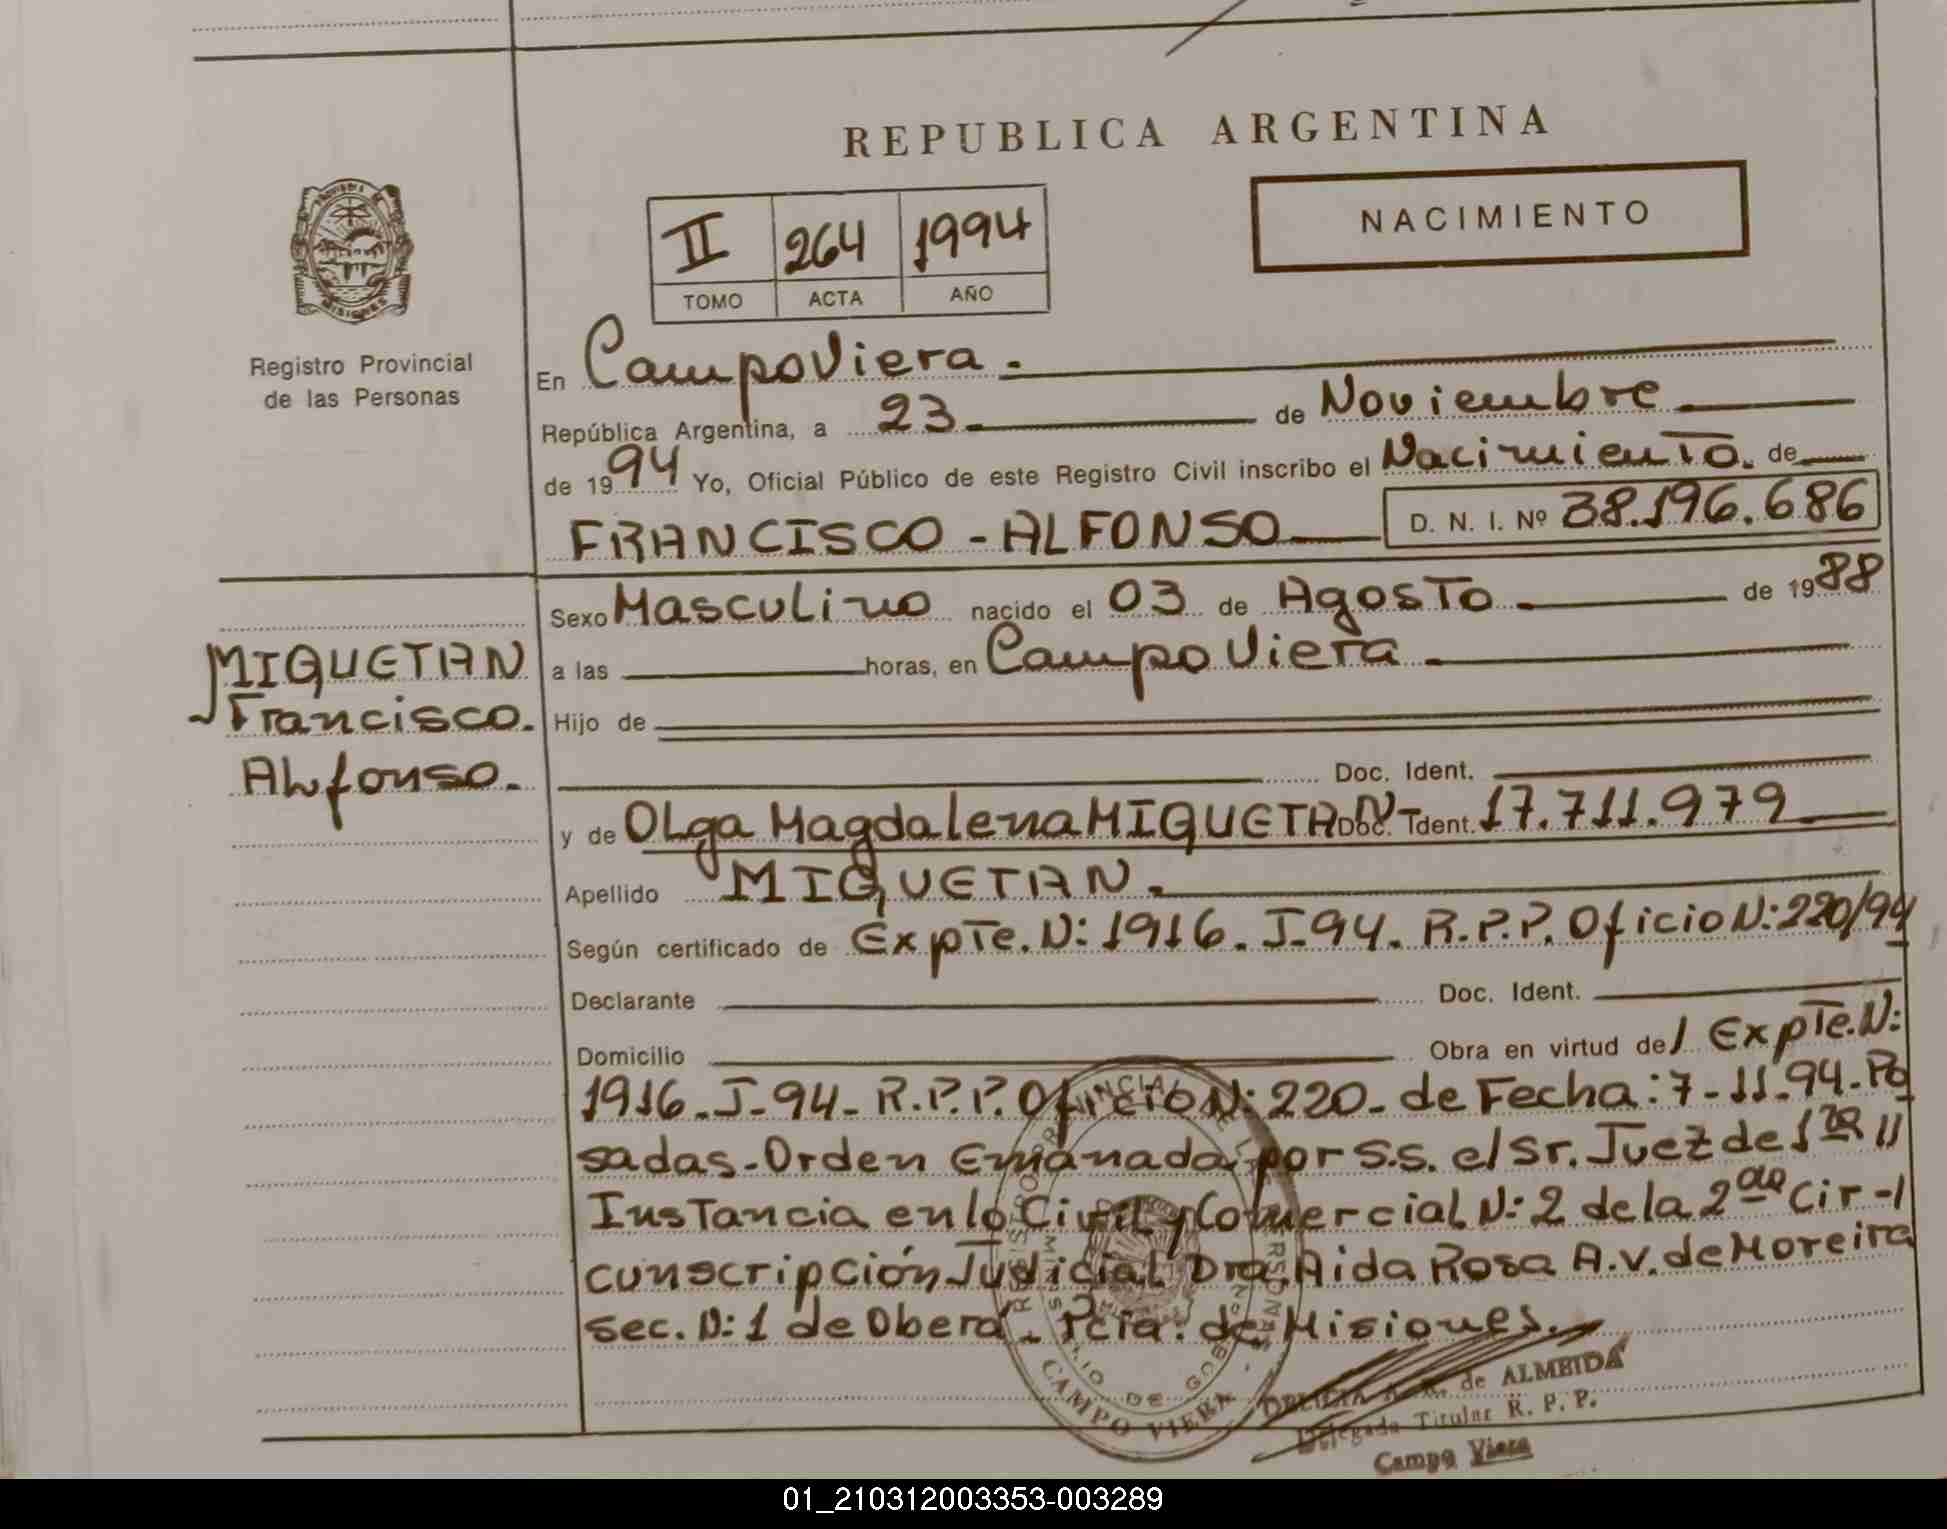 REPUBLICA ARGENTINA
NACIMIENTO
II 264 1994
TOMO ACTA AÑO
Registro Provincial
de las Personas
En CampoViera.
República Argentina, a 23. de Noviembre
de 1994 Yo, Oficial Público de este Registro Civil inscribo el Nacimiento. de
FRANCISCO - ALFONSO D. N. I. Nº 38.196.686
MIQUETAN
Francisco.
Alfonso.
Sexo Masculino nacido el 03 de Agosto. de 1988
a las horas, en Campo Viera.
Hijo de
Doc. Ident.
y de Olga Magdalena MIQUETAN Doc. Ident. 17.711.979
Apellido MIQUETAN.
Según certificado de Expte. N: 1916. J-94. R.P.P. Oficio N: 220/94
Declarante Doc. Ident.
Domicilio Obra en virtud de/ Expte. N:
1916. J-94- R.P.P. Oficio N: 220- de Fecha: 7-11-94. Po
sadas-Orden Emanada por S.S. el Sr. Juez de 1ra //
Instancia en lo Civil y Comercial N: 2 de la 2da Cir-/
cunscripción Judicial Dra. Aida Rosa A.V. de Moreira
sec. N: 1 de Oberá. Pcia. de Misiones.
CAMPO VIERA
de ALMEIDA
Delegada Titular R. P. P.
Campo Viera
01_210312003353-003289